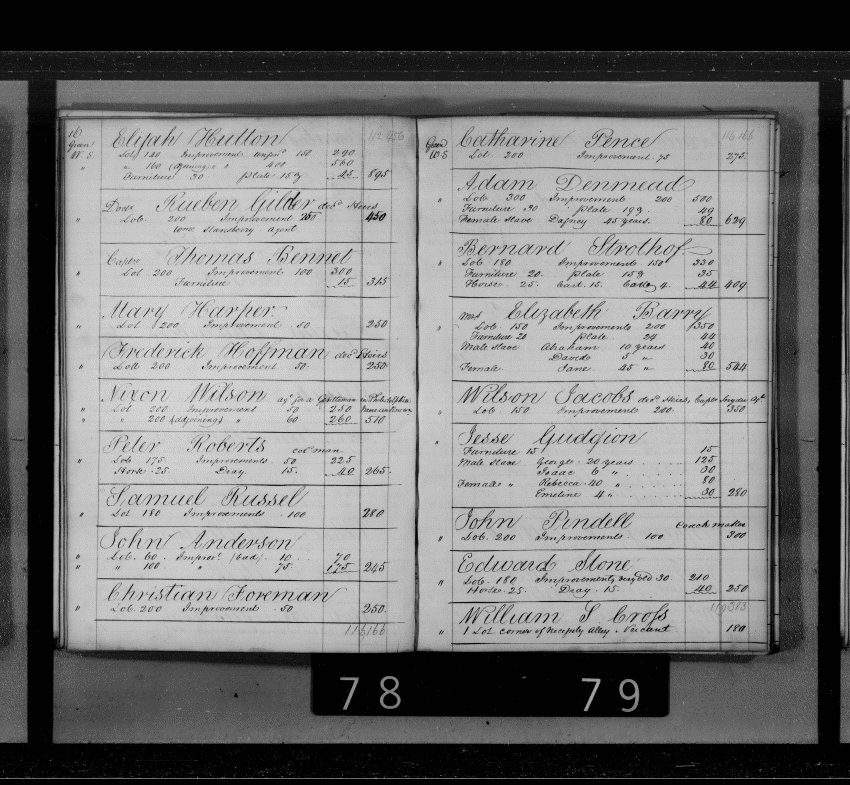 16
Green
W. S.
112 456
Elijah Hutton
Lot 140 Improvement 150 290
" 160 (adjoining) " 400 560
Furniture 30 plate 15 45 895
Doctr Rueben Gilder decd Heirs
Lot 200 Improvement 250 450
Stansbury agent
Captn Thomas Bennet
" Lot 200 Improvement 100 300
Furniture 15 315
Mary Harper
" Lot 200 Improvement 50 250
Frederick Hoffman decd Heirs
" Lot 200 Improvement 50 250
Nixon Wilson agt for a Gentleman in Philadelphia
" Lot 200 Improvement 50 250
" " 200 (adjoining) " 60 260 510
Peter Roberts cold man
" Lot 175 Improvements 50 225
Horse 25 Dray 15 40 265
Samuel Russel
" Lot 180 Improvements 100 280
John Anderson
" Lot 60 Improvt (bad) 10 70
" " 100 " 75 175 245
Christian Foreman
" Lot 200 Improvements 50 250
116166
116 166
Green
W. S
Catharine Pence
Lot 200 Improvement 75 275
Adam Denmead
" Lots 300 Improvements 200 500
Furniture 30 plate 19 49
Female Slave Dafney 45 years 80 629
Bernard Strolhof
" Lot 180 Improvements 150 330
Furniture 20 plate 15 35
Horse 25 Cart 15 Cattle 4 44 409
Mrs Elizabeth Barry
" Lot 150 Improvements 200 350
Furniture 20 plate 24 44
Male Slave Abraham 10 years 40
David 5 " 30
Female Jane 45 " 80 544
Wilson Jacobs decd Heirs, Captn Snyder Agt
" Lot 150 Improvements 200 350
Jesse Gudgion
" Furniture 15 15
Male Slave George 20 years 125
Isaac 6 " 30
Female " Rebecca 40 " 80
Emeline 4 " 30 280
John Pindell Coach maker
" Lot 200 Improvements 100 300
Edward Stone
" Lot 180 Improvements very old 30 210
Horse 25 Dray 15 40 250
119383
William S Cross
" 1 Lot corner of Necessity Alley Vacant 180
78 79